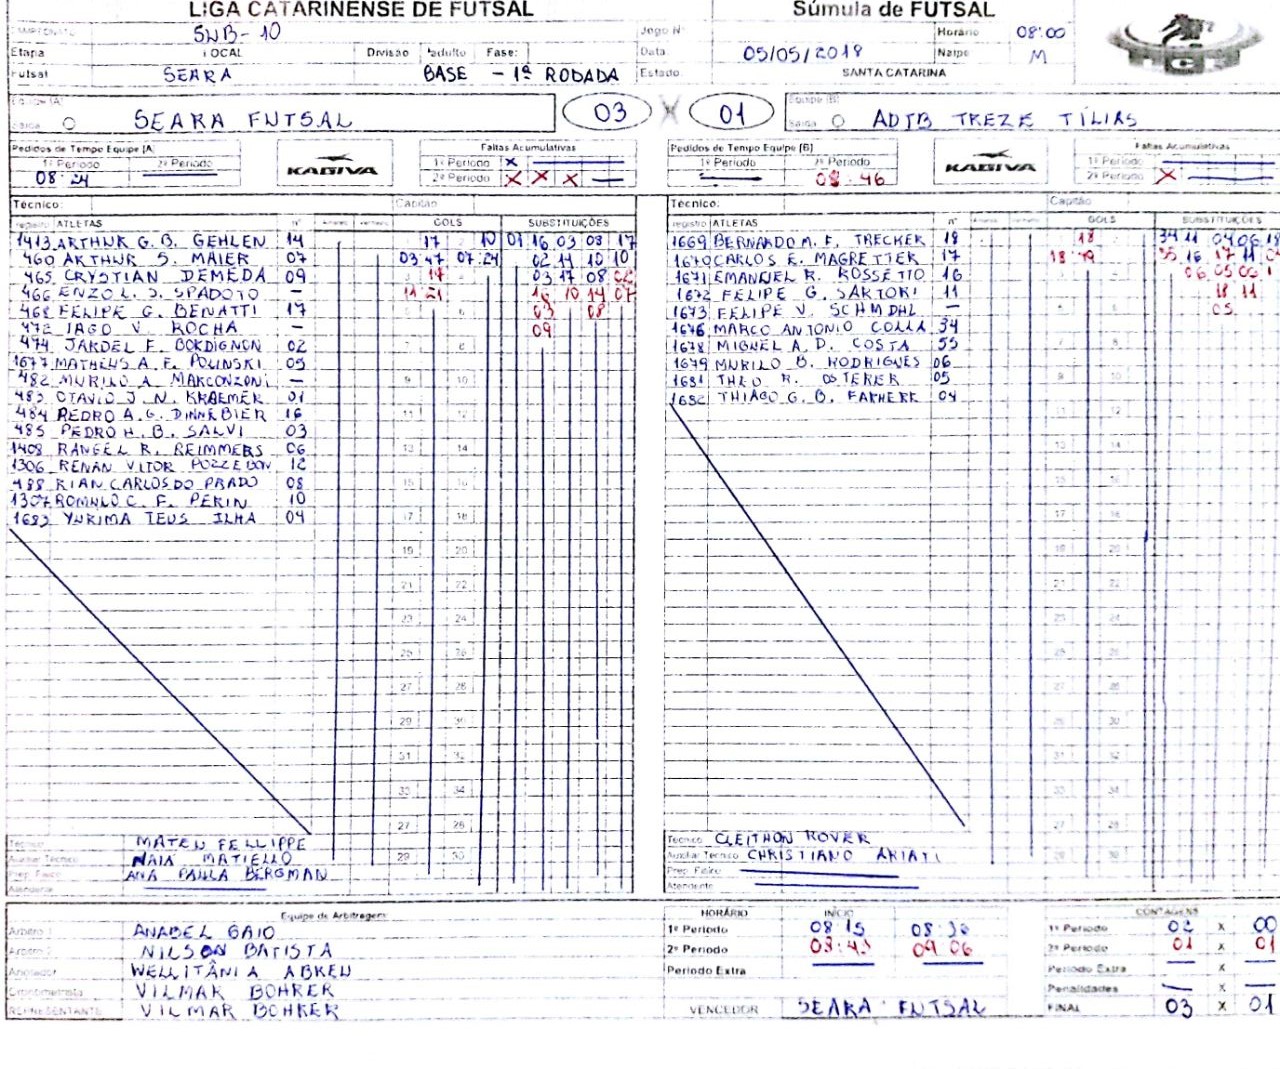 LIGA CATARINENSE DE FUTSAL Súmula de FUTSAL
SUB-10 Jogo Nº Horário 08:00
Etapa LOCAL Divisão Fase: Data: 05/05/2018 Naipe M
Futsal SEARA BASE - 1ª RODADA Estado: SANTA CATARINA
SEARA FUTSAL 03 X 01 ADTB TREZE TÍLIAS
Pedidos de Tempo Equipe [A] Faltas Acumulativas Pedidos de Tempo Equipe [B] Faltas Acumulativas
1º Período 2º Período KAGIVA 1º Período X 1º Período 2º Período KAGIVA 1º Período
08:24 2º Período X X X 08:46 2º Período X
Técnico: Capitão Técnico: Capitão
registro ATLETAS nº GOLS SUBSTITUIÇÕES registro ATLETAS nº GOLS SUBSTITUIÇÕES
1413 ARTHUR G. B. GEHLEN 14 17 10 01 16 03 08 17 1669 BERNARDO M. F. TRECKER 18 18 34 11 04 06 18
460 ARTHUR S. MAIER 07 03:47 07:24 02 14 10 10 1670 CARLOS E. MAGRETTER 17 18:49 55 16 17 11
465 CRYSTIAN DEMEDA 09 03 17 08 02 1671 EMANUEL R. ROSSETTO 16 06 05
466 ENZO L. S. SPADOTO - 16 10 14 07 1672 FELIPE G. SARTORI 11 18 11
468 FELIPE G. BENATTI 17 03 08 1673 FELIPE V. SCHMDHL - 05
472 IAGO V. ROCHA - 09 1676 MARCO ANTONIO COLLA 34
474 JARDEL F. BORDIGNON 02 1678 MIGUEL A. D. COSTA 55
1677 MATHEUS A. F. POLINSKI 05 1679 MURILO B. RODRIGUES 06
482 MURILO A. MARCONZONI - 1681 THEO R. OSTERER 05
483 OTAVIO J. N. KRAEMER 01 1682 THIAGO G. B. FAKHERR 04
484 PEDRO A. G. DINNEBIER 16
485 PEDRO H. B. SALVI 03
1408 RANGEL R. REIMMERS 06
1306 RENAN VITOR POZZEBON 12
488 RIAN CARLOS DO PRADO 08
1307 ROMULO C. F. PERIN 10
1683 YURI MATEUS ILHA 04
Técnico MATEU FELLIPPE Técnico CLEITHON ROVER
Auxiliar Técnico NAIA MATIELLO Auxiliar Técnico CHRISTIANO ARIATI
Prep. Físico ANA PAULA BERGMAN Prep. Físico
Atendente Atendente
Equipe de Arbitragem HORÁRIO INÍCIO CONTAGENS
Árbitro 1 ANABEL GAIO 1º Período 08 15 08:36 1º Período 02 X 00
Árbitro 2 NILSON BATISTA 2º Período 08:43 09 06 2º Período 01 X 01
Anotador WELLITÂNIA ABREU Período Extra Período Extra X
Cronometrista VILMAR BOHRER Penalidades X
REPRESENTANTE VILMAR BOHRER VENCEDOR SEARA FUTSAL FINAL 03 X 01